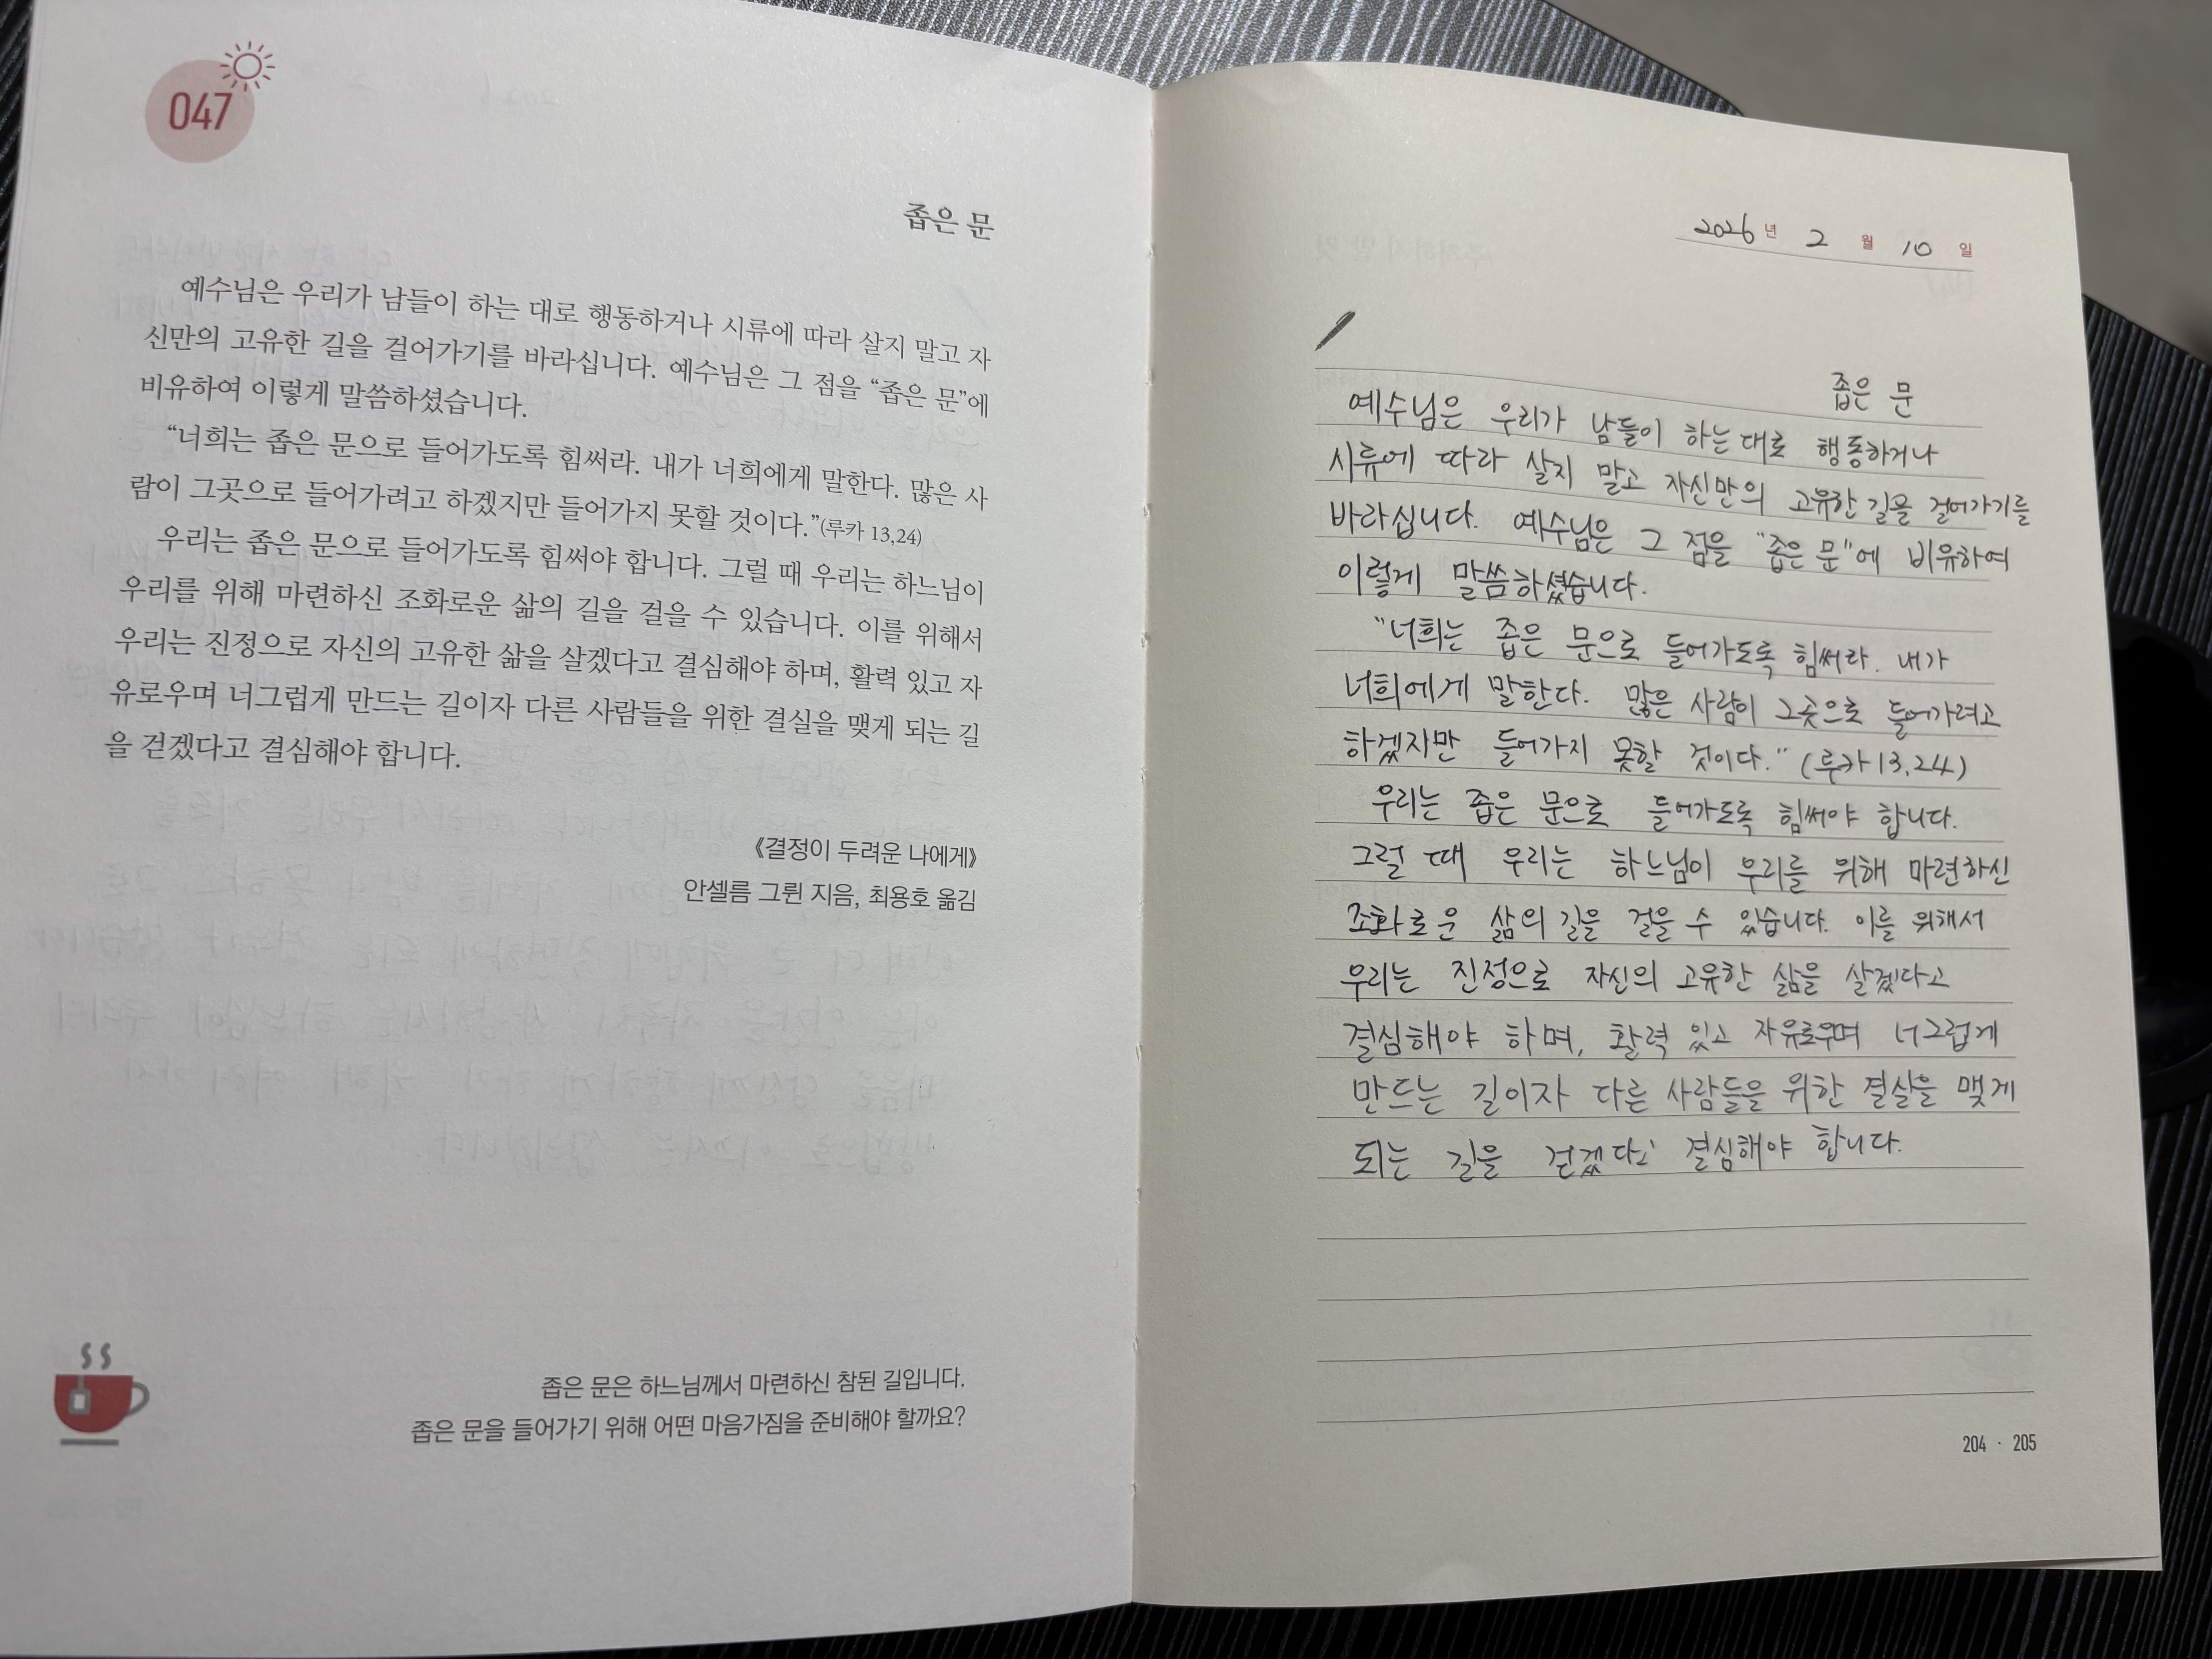 047
좁은 문
예수님은 우리가 남들이 하는 대로 행동하거나 시류에 따라 살지 말고 자
신만의 고유한 길을 걸어가기를 바라십니다. 예수님은 그 점을 “좁은 문”에
비유하여 이렇게 말씀하셨습니다.
“너희는 좁은 문으로 들어가도록 힘써라. 내가 너희에게 말한다. 많은 사
람이 그곳으로 들어가려고 하겠지만 들어가지 못할 것이다.”(루카 13,24)
우리는 좁은 문으로 들어가도록 힘써야 합니다. 그럴 때 우리는 하느님이
우리를 위해 마련하신 조화로운 삶의 길을 걸을 수 있습니다. 이를 위해서
우리는 진정으로 자신의 고유한 삶을 살겠다고 결심해야 하며, 활력 있고 자
유로우며 너그럽게 만드는 길이자 다른 사람들을 위한 결실을 맺게 되는 길
을 걷겠다고 결심해야 합니다.
《결정이 두려운 나에게》
안셀름 그륀 지음, 최용호 옮김
좁은 문은 하느님께서 마련하신 참된 길입니다.
좁은 문을 들어가기 위해 어떤 마음가짐을 준비해야 할까요?
2026년 2월 10일
좁은 문
예수님은 우리가 남들이 하는 대로 행동하거나
시류에 따라 살지 말고 자신만의 고유한 길을 걸어가기를
바라십니다. 예수님은 그 점을 “좁은 문”에 비유하여
이렇게 말씀하셨습니다.
“너희는 좁은 문으로 들어가도록 힘써라. 내가
너희에게 말한다. 많은 사람이 그곳으로 들어가려고
하겠지만 들어가지 못할 것이다.” (루카 13,24)
우리는 좁은 문으로 들어가도록 힘써야 합니다.
그럴 때 우리는 하느님이 우리를 위해 마련하신
조화로운 삶의 길을 걸을 수 있습니다. 이를 위해서
우리는 진정으로 자신의 고유한 삶을 살겠다고
결심해야 하며, 활력 있고 자유로우며 너그럽게
만드는 길이자 다른 사람들을 위한 결실을 맺게
되는 길을 걷겠다고 결심해야 합니다.
204 · 205